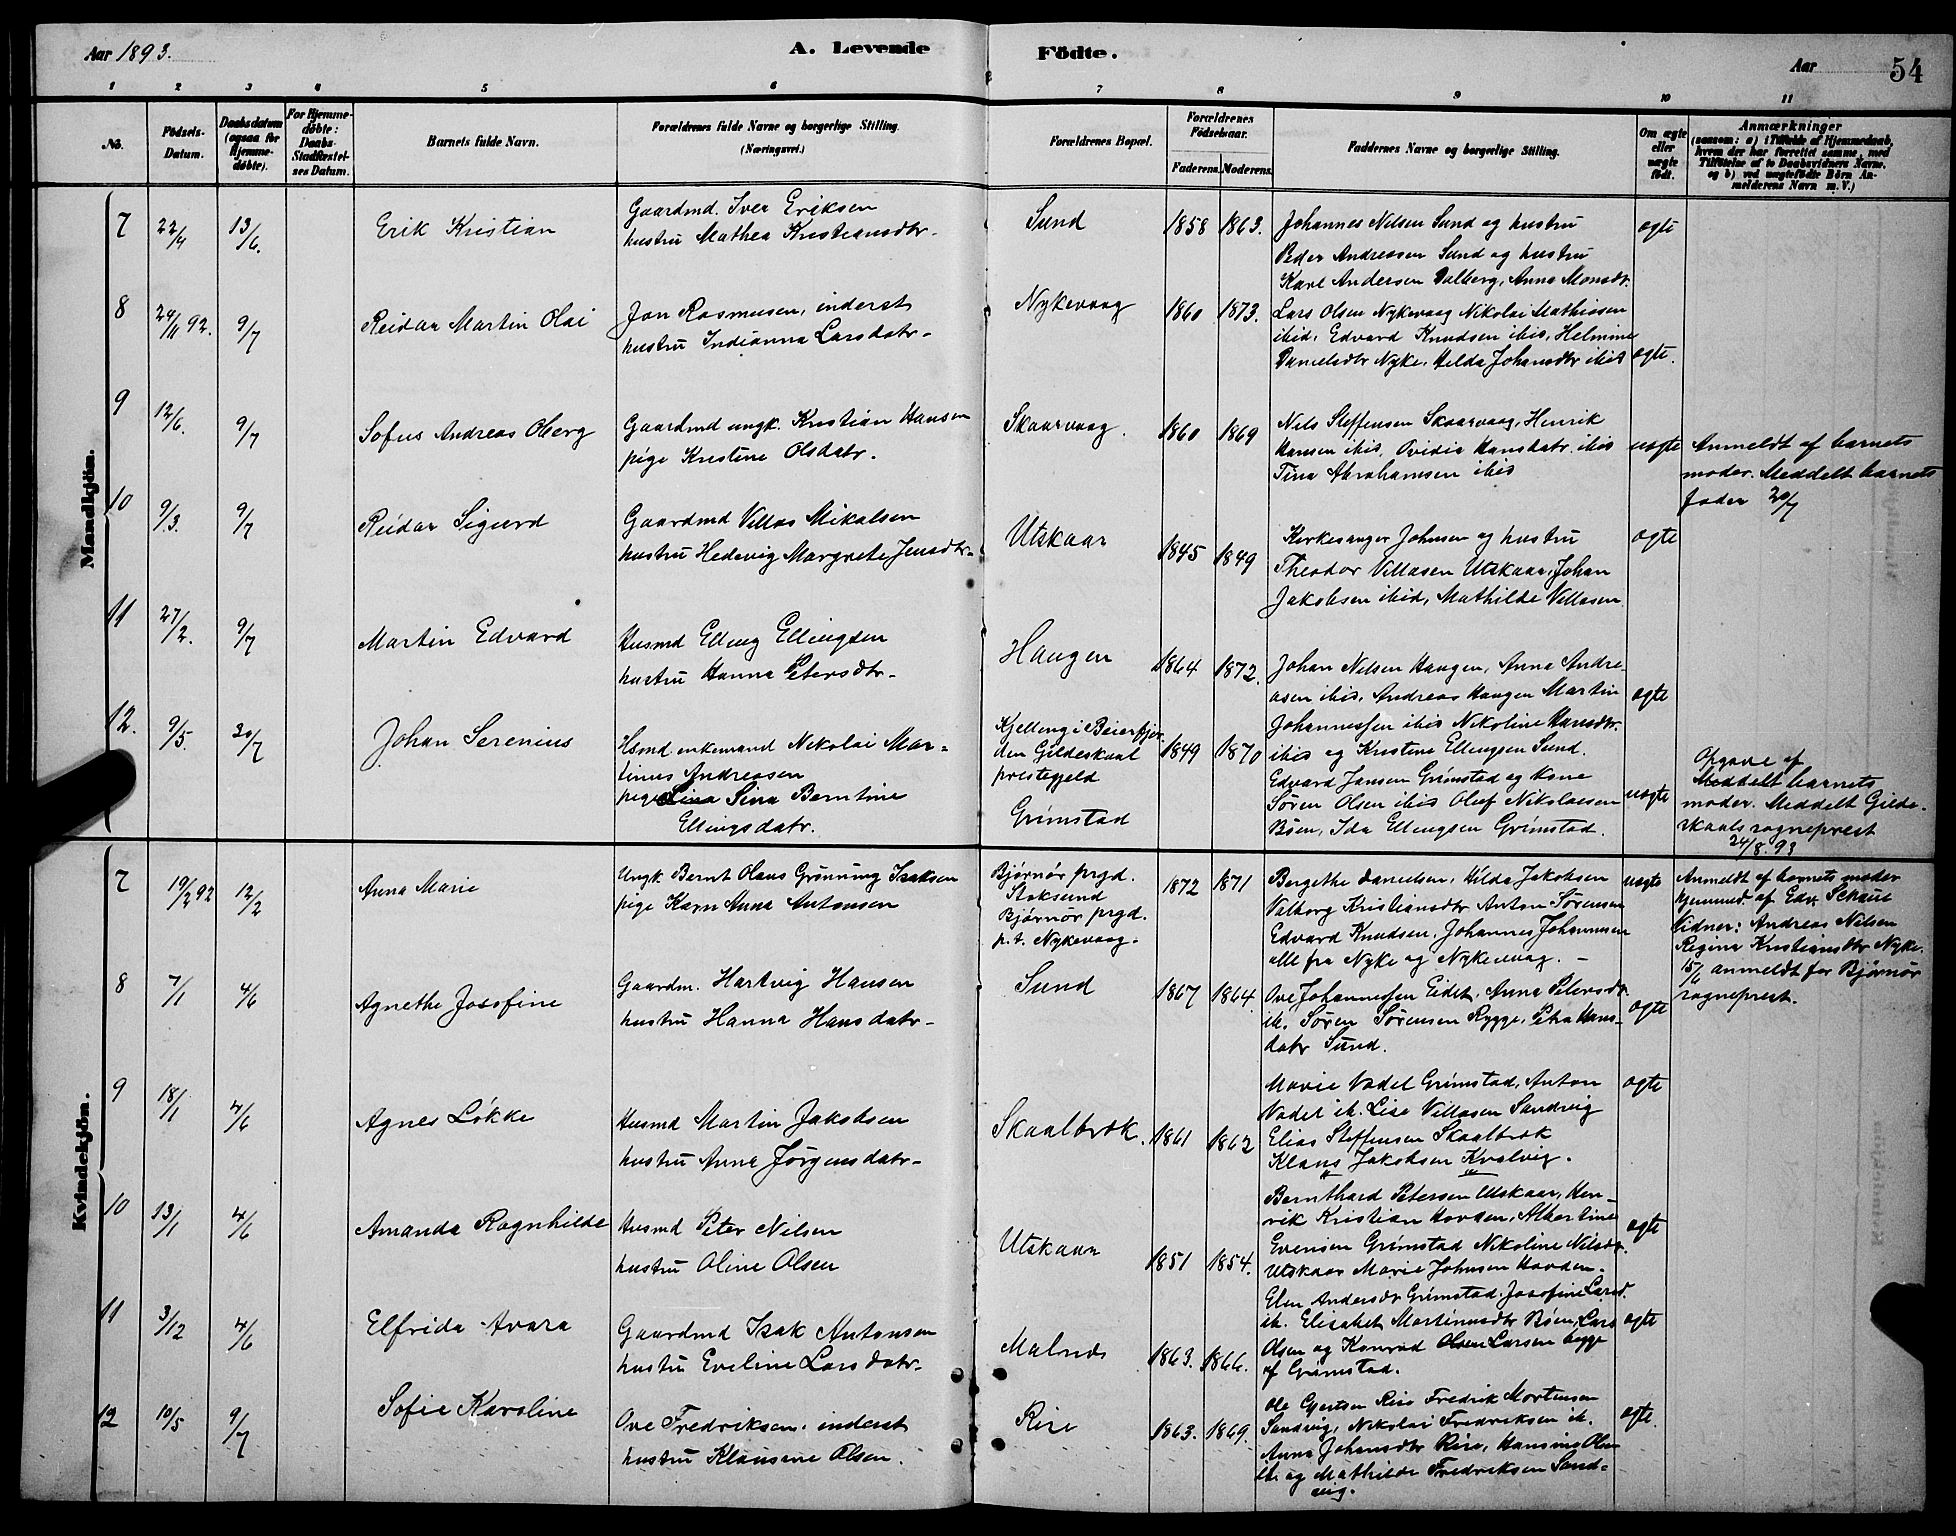 Aar 1893.
A. Levende Födte.
Aar
54
1 2 3 4 5 6 7 8 9 10 11
No.
Födsels-Datum.
Daabsdatum (ogsaa for Hjemme-döbte).
For Hjemme-döbte: Daabs-Stadfæstel-ses Datum.
Barnets fulde Navn.
Forældrenes fulde Navne og borgerlige Stilling. (Næringsvei.)
Forældrenes Bopæl.
Forældrenes Födselsaar.
Faderens. Moderens.
Faddernes Navne og borgerlige Stilling.
Om ægte eller uægte födt.
Anmærkninger
(saasom: a) i Tilfælde af Hjemmedaab, hvem der har forrettet samme, med Tilföielse af to Daabsvidners Navne, og b) ved uægtefödte Börn An-melderens Navn m. V.)
Mandkjön.
7 22/4 13/6. Erik Kristian
Gaardmd. Iver Eriksen
hustru Mathea Kristiansdtr.
Sund 1858 1863.
Johannes Nilsen Sund og hustru
Peder Andreassen Sund og hustru
Karl Andersen Dalberg, Anna Monsdtr.
ægte
8 24/11 92. 9/7 Reidar Martin Olai
Jon Rasmusen, inderst
hustru Indianna Larsdatr.
Nykevaag 1860 1873.
Lars Olsen Nykevaag Nikolai Mathiesen
ibid, Edvard Knudsen ibid, Helmine
Danielsdtr Nyke, Hilda Johansdtr ibid
ægte.
9 12/6. 9/7 Sofus Andreas Oberg
Gaardmd ungk. Kristian Hansen
pige Kristine Olsdatr.
Skaarvaag. 1860 1869
Nils Steffensen Skaarvaag, Henrik
Hansen ibid, Ovidia Hansdatr. ibid
Tina Abrahamsen ibid
uægte
Anmeldt af barnets
moder. Meddelt barnets
fader 20/7
10 9/3. 9/7 Reidar Sigurd
Gaardmd Villas Mikalsen
hustru Hedevig Margrete Jensdtr.
Utskaar 1845 1849
Kirkesanger Johnsen og hustru
Theodor Villasen Utskaar, Johan
Jakobsen ibid, Mathilde Villasen
ægte
11 27/2. 9/7 Martin Edvard
Husmd Elling Ellingsen
hustru Hanna Petersdtr.
Haugen 1864 1872.
Johan Nilsen Haugen, Anna Andre-
asen ibid, Andreas Haugen Martin
Johannessen ibid Nikoline Hansdtr.
ibid og Kristine Ellingsen Sund.
ægte
12. 9/5. 30/7 Johan Serenius
Hsmd enkemand Nikolai Mar-
tinus Andreasen
pige Lina Sina Berntine
Ellingsdatr.
Kjelling i Beierfjor-
den Gildeskaal
prestegjeld
Grimstad
1849 1870
Edvard Jansen Grimstad og kone
Søren Olsen ibid Oluf Nikolaisen
Bøen, Ida Ellingsen Grimstad.
uægte
Opgave af
Meddelt barnets
moder. Meddelt Gilde-
skaals sogneprest
24/8. 93
Kvindekjön.
7 19/2 92 12/2 Anna Marie
Ungk Bernt Olaus Grønning Isaksen
pige Karn Anna Antonsen
Bjørnør prgd.
Stoksund
Bjørnør prgd.
p.t. Nykevaag.
1872 1871
Bergethe Danielsen, Hilda Jakobsen
Valborg Kristiansdtr Anton Sørensen
Edvard Knudsen, Johannes Johannesen
alle fra Nyke og Nykevaag.
uægte
Anmeldt af barnets moder
hjemmed. af Edv. Schaue
Vidner: Andreas Nilsen
Regina Kristiansdtr Nyke.
15/6 anmeldt for Bjørnør
sogneprest.
8 7/1 4/6 Agnethe Josefine
Gaardm. Hartvig Hansen
hustru Hanna Hansdatr.
Sund 1867 1864.
Ove Johannessen Eidet, Anna Petersdtr.
ib. Søren Sørensen Rygge, Petra Hans-
datr Sund.
ægte
9 18/1 4/6 Agnes Løkke
Husmd Martin Jakobsen
hustru Anna Jørgensdatr.
Skaalbrok. 1861 1862
Marie Vadel Grimstad, Anton
Vadel ib. Lise Villasen Sandvig
Elias Steffensen Skaalbrok
Klaus Jakobsen Kvalvig.
ægte
10 13/1 4/6 Amanda Ragnhilde
Husmd Peter Nilsen
hustru Oline Olsen
Utskaar 1851 1854.
Bernthard Petersen Utskaar, Hen-
rik Kristian Hovden, Albertine
Evensen Grimstad Nikoline Nilsdtr.
Utskaar Marie Johnsen Hovden.
ægte
11 3/12 4/6 Elfrida Avara
Gaardmd Isak Antonsen
hustru Eveline Larsdatr.
Malnes 1863. 1866.
Elen Andersdtr Grimstad, Josefine Larsd.
ib. Elisabet Martinusdtr Bøen, Lars
Olsen og Konrad Olsen Larsen begge
af Grimstad.
ægte
12 10/5 9/7 Sofie Karoline
Ove Fredriksen, inderst
hustru Klausine Olsen.
Rise 1863. 1869.
Ole Gjertsen Rise Fredrik Mortensen
Sandvig, Nikolai Fredriksen ib.
Anna Johansdtr Rise, Hansine Olsen
ib. og Mathilde Fredriksen Sand-
vig.
ægte.